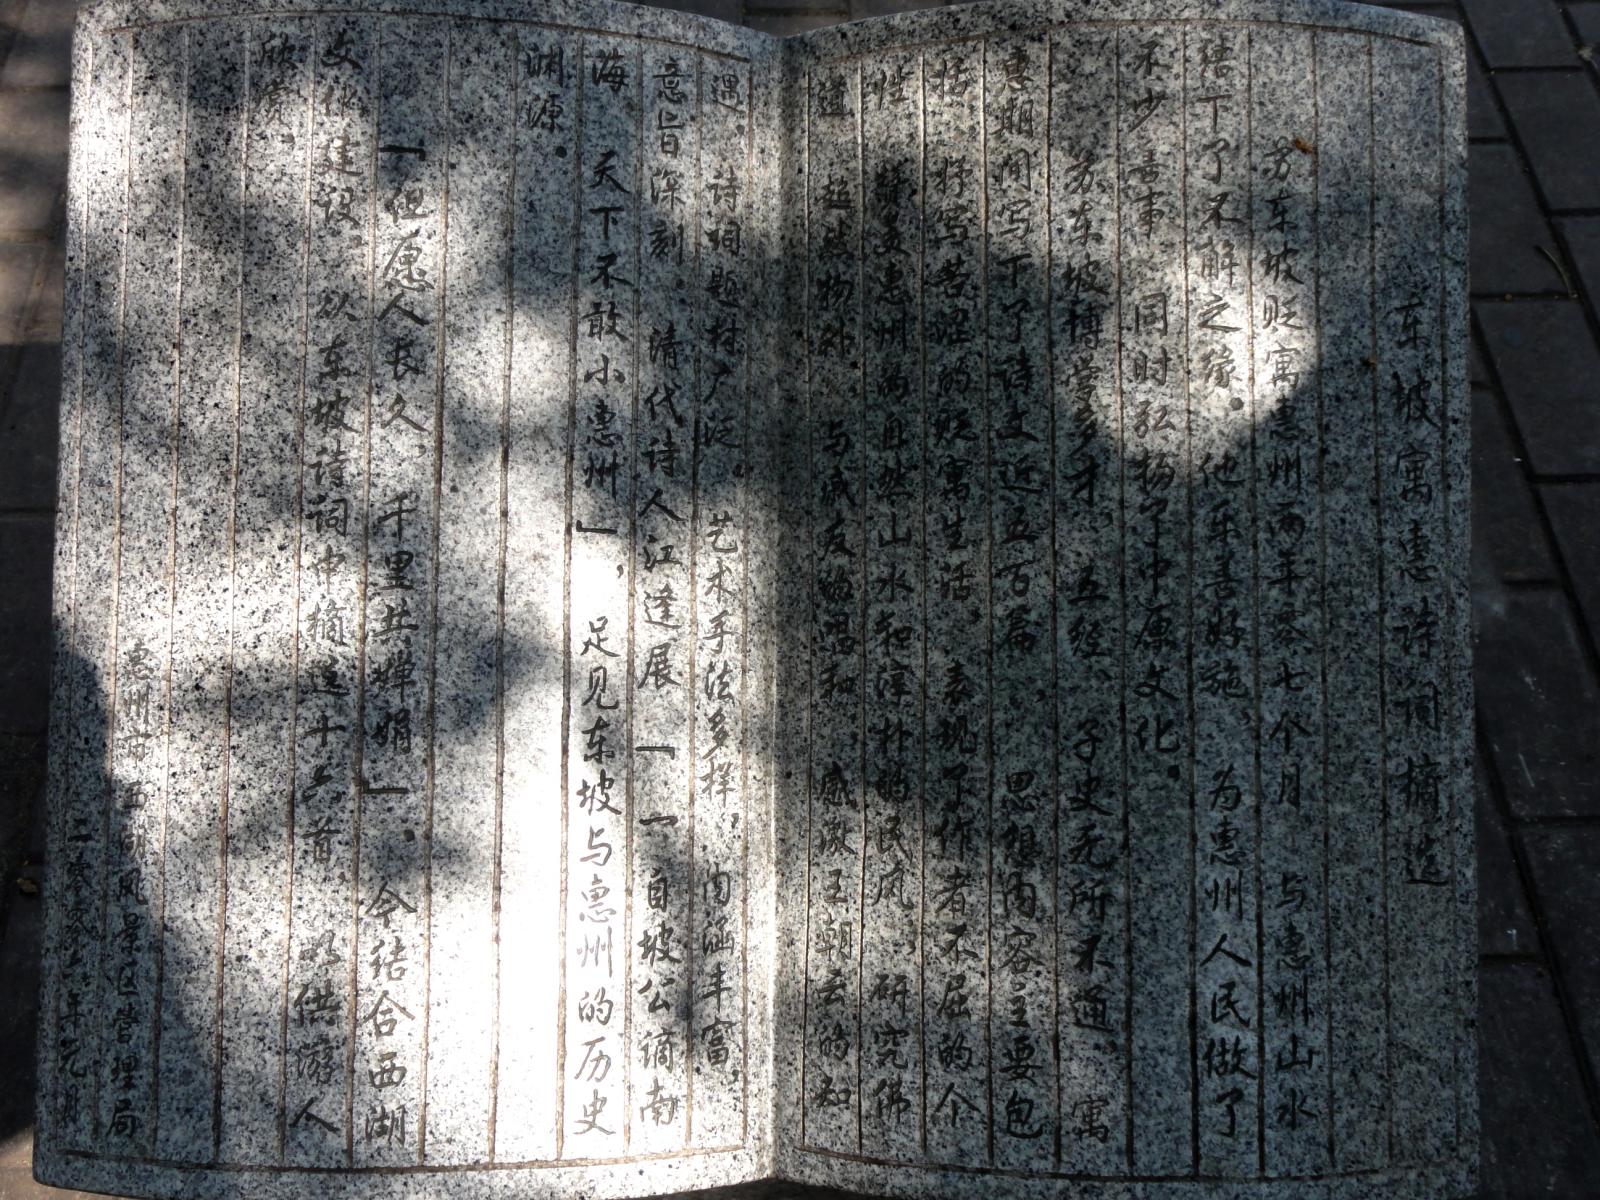 东坡寓惠诗词摘选
苏东坡贬寓惠州两年零七个月，与惠州山水
结下了不解之缘。他乐善好施，为惠州人民做了
不少善事，同时弘扬了中原文化。
苏东坡博学多才，五经、子史无所不通，寓
惠期间写下了诗文近五百篇，思想内容主要包
括：抒写苦涩的贬寓生活，表现了作者不屈的个
性，赞美惠州的自然山水和淳朴的民风，研究佛
道，超然物外，与戚友的唱和，感激王朝云的知
遇。诗词题材广泛。艺术手法多样，内涵丰富，
意旨深刻。清代诗人江逢展『「自坡公谪南
海，天下不敢小惠州」，足见东坡与惠州的历史
渊源。
『但愿人长久，千里共婵娟』。今结合西湖
文化建设，从东坡诗词中摘选十六首，以供游人
欣赏。
惠州市西湖风景区管理局
二零零二年元月